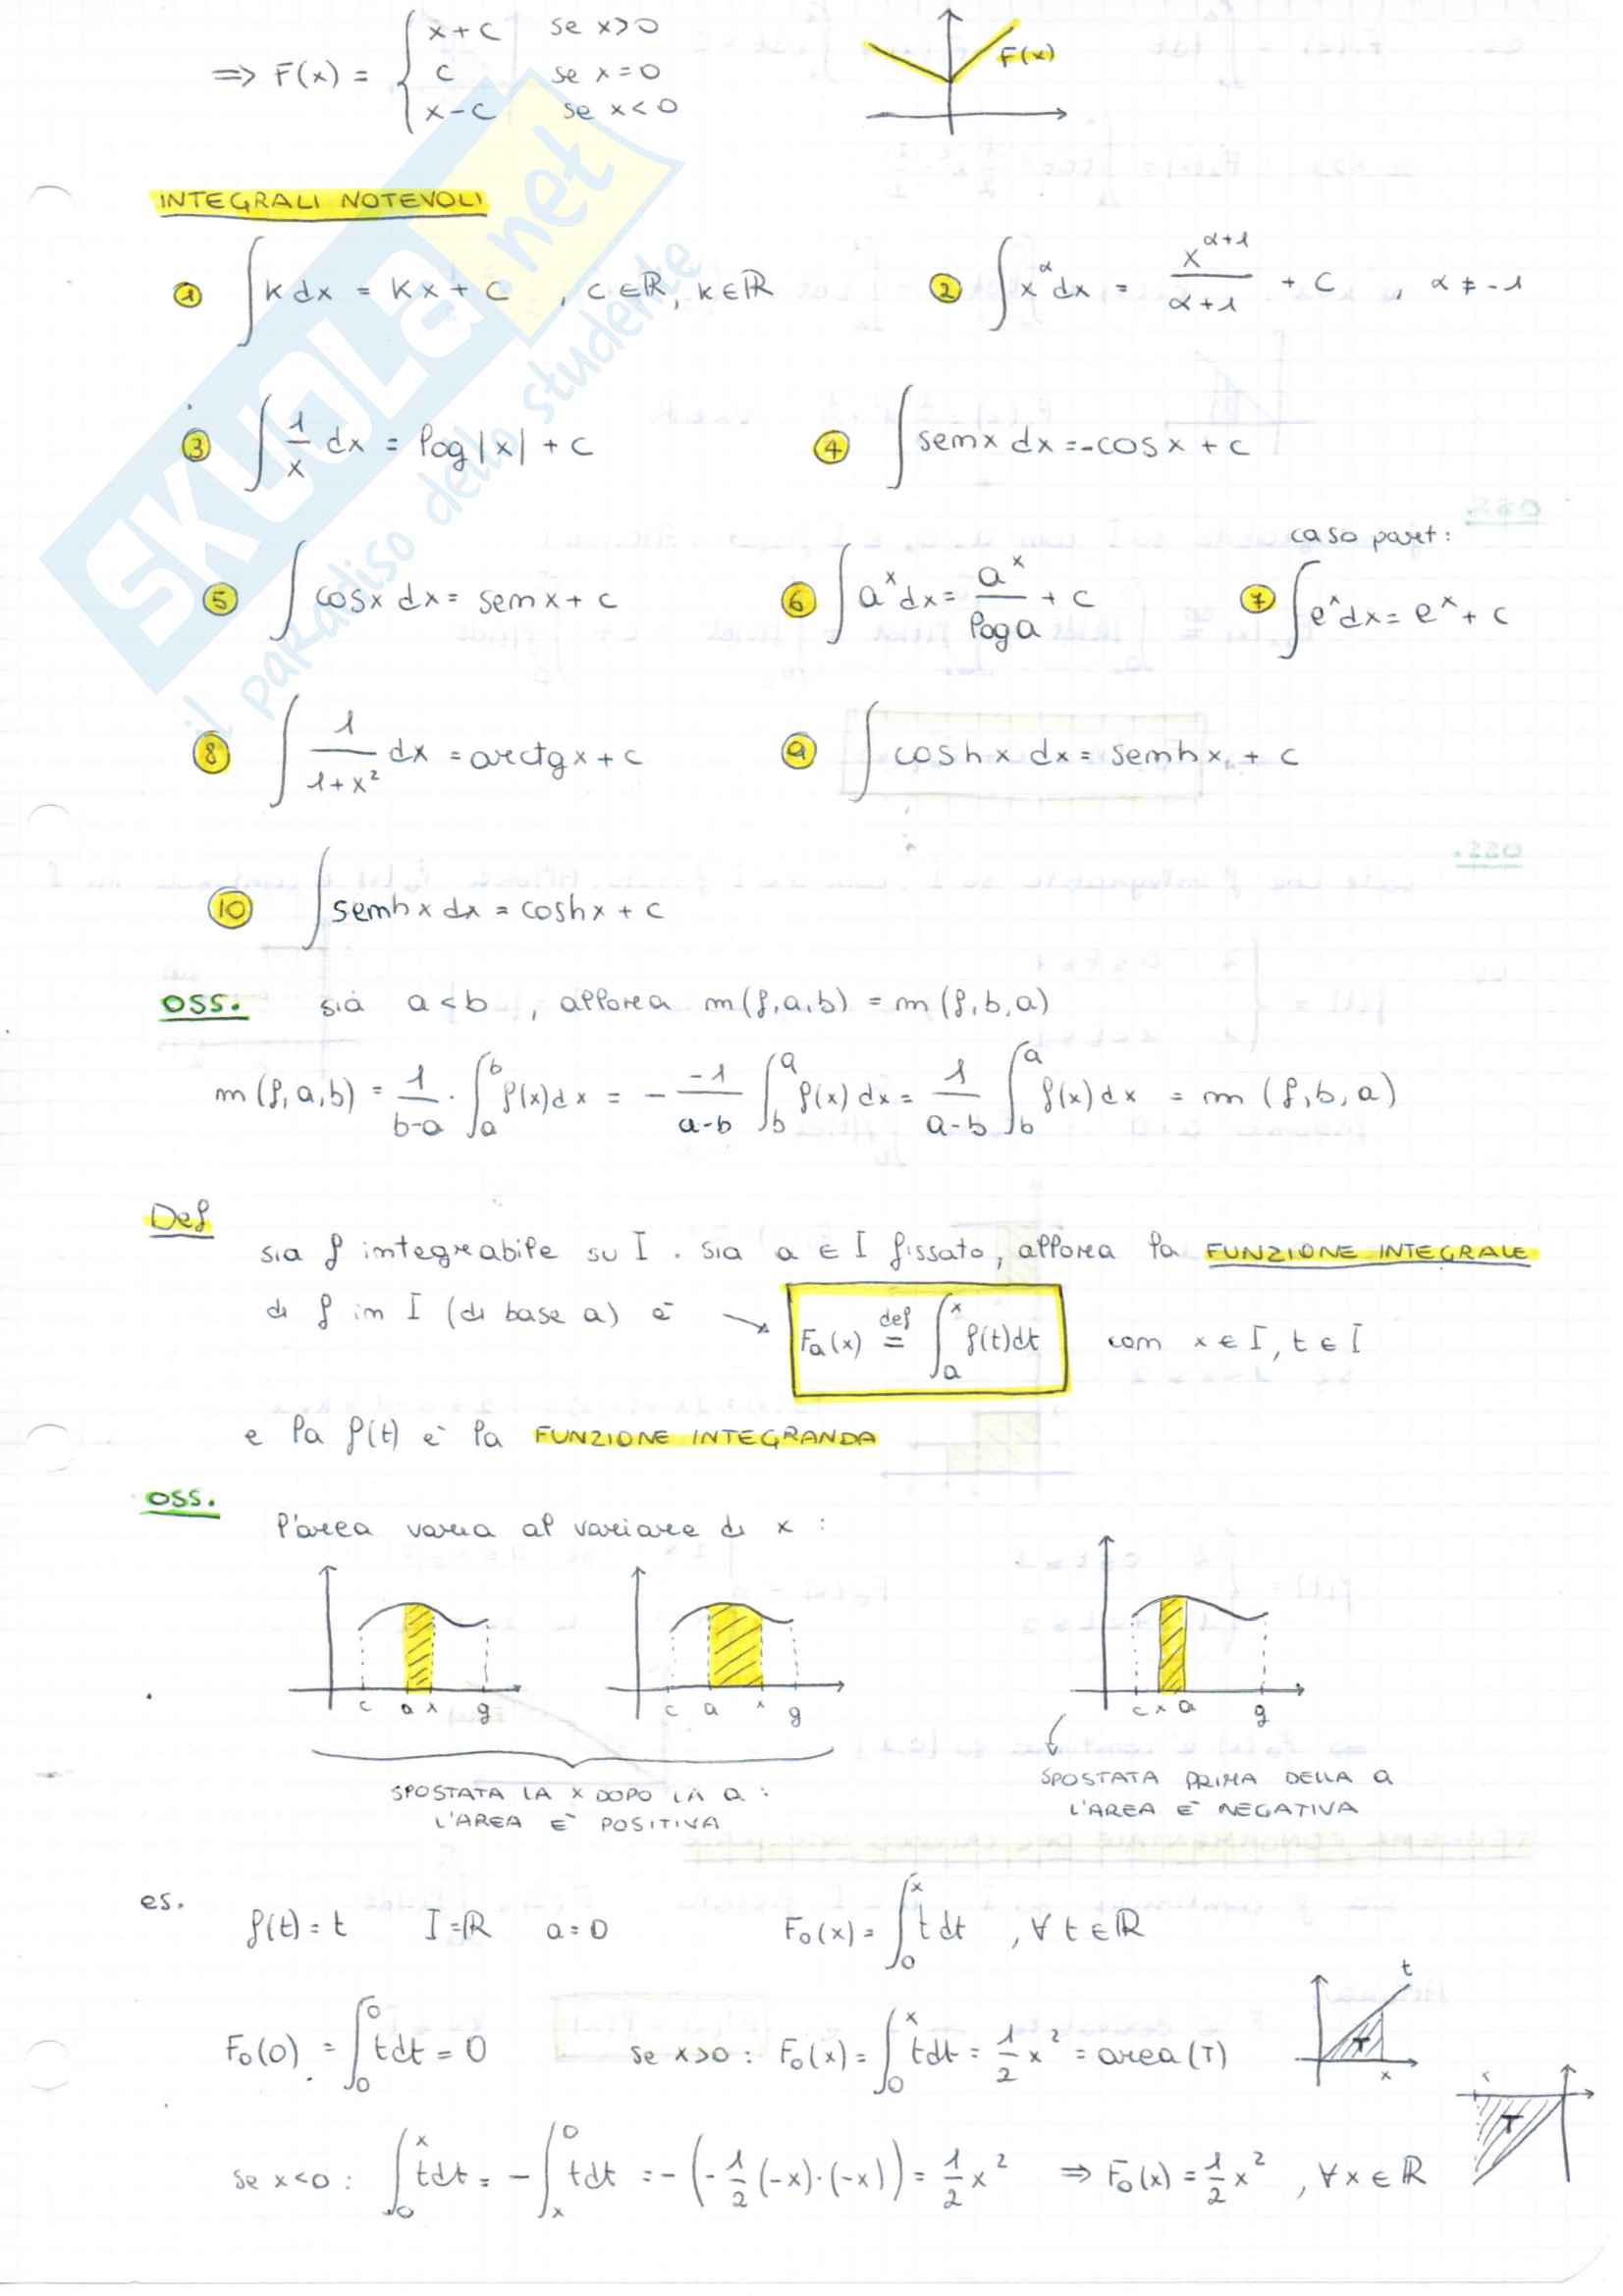 => F(x) = { x+c se x>0
c se x=0
x-c se x<0
F(x)
INTEGRALI NOTEVOLI
1 ∫ k dx = kx + c , c∈ℝ, k∈ℝ
2 ∫ x^α dx = x^(α+1)/(α+1) + c , α ≠ -1
3 ∫ 1/x dx = log|x| + c
4 ∫ senx dx = -cosx + c
5 ∫ cosx dx = senx + c
6 ∫ a^x dx = a^x/log a + c
caso part:
7 ∫ e^x dx = e^x + c
8 ∫ 1/(1+x²) dx = arctgx + c
9 ∫ coshx dx = senhx + c
10 ∫ senhx dx = coshx + c
SKUOLA.net
il paradiso dello studente
OSS. sia a<b, allora m(f,a,b) = m(f,b,a)
m(f,a,b) = 1/(b-a) · ∫_a^b f(x)dx = - -1/(a-b) ∫_b^a f(x)dx = 1/(a-b) ∫_b^a f(x)dx = m(f,b,a)
Def
sia f integrabile su I. sia a ∈ I fissato, allora la FUNZIONE INTEGRALE
di f in I (di base a) è → F_a(x) def= ∫_a^x f(t)dt con x∈I, t∈I
e la f(t) è la FUNZIONE INTEGRANDA
OSS.
l'area varia al variare di x :
c a x g
c a x g
c x a g
SPOSTATA LA X DOPO LA a :
L'AREA È POSITIVA
SPOSTATA PRIMA DELLA a
L'AREA È NEGATIVA
es.
f(t) = t I=ℝ a=0 F_0(x) = ∫_0^x t dt , ∀ t∈ℝ
F_0(0) = ∫_0^0 t dt = 0 se x>0 : F_0(x) = ∫_0^x t dt = 1/2 x² = area(T)
t
T
x
x
T
se x<0 : ∫_0^x t dt = -∫_x^0 t dt = -(-1/2 (-x)·(-x)) = 1/2 x² ⇒ F_0(x) = 1/2 x² , ∀x∈ℝ